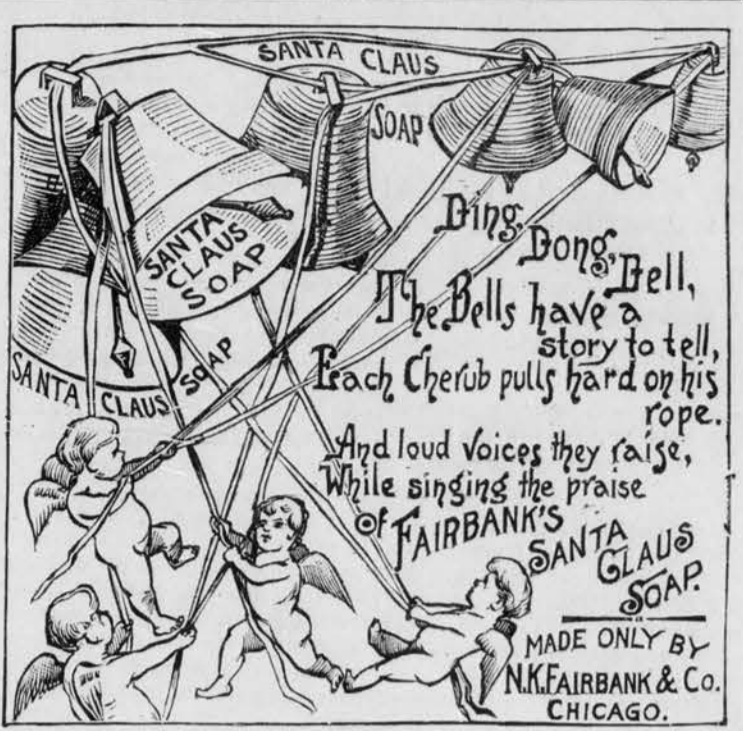 SANTA CLAUS
SOAP
SANTA
CLAUS
SOAP
SANTA CLAUS SOAP
Ding,
Dong,
Dell,
The Bells have a
story to tell,
Each Cherub pulls hard on his
rope.
And loud voices they raise,
While singing the praise
of FAIRBANK'S
SANTA
CLAUS
SOAP.
MADE ONLY BY
N.K. FAIRBANK & CO.
CHICAGO.